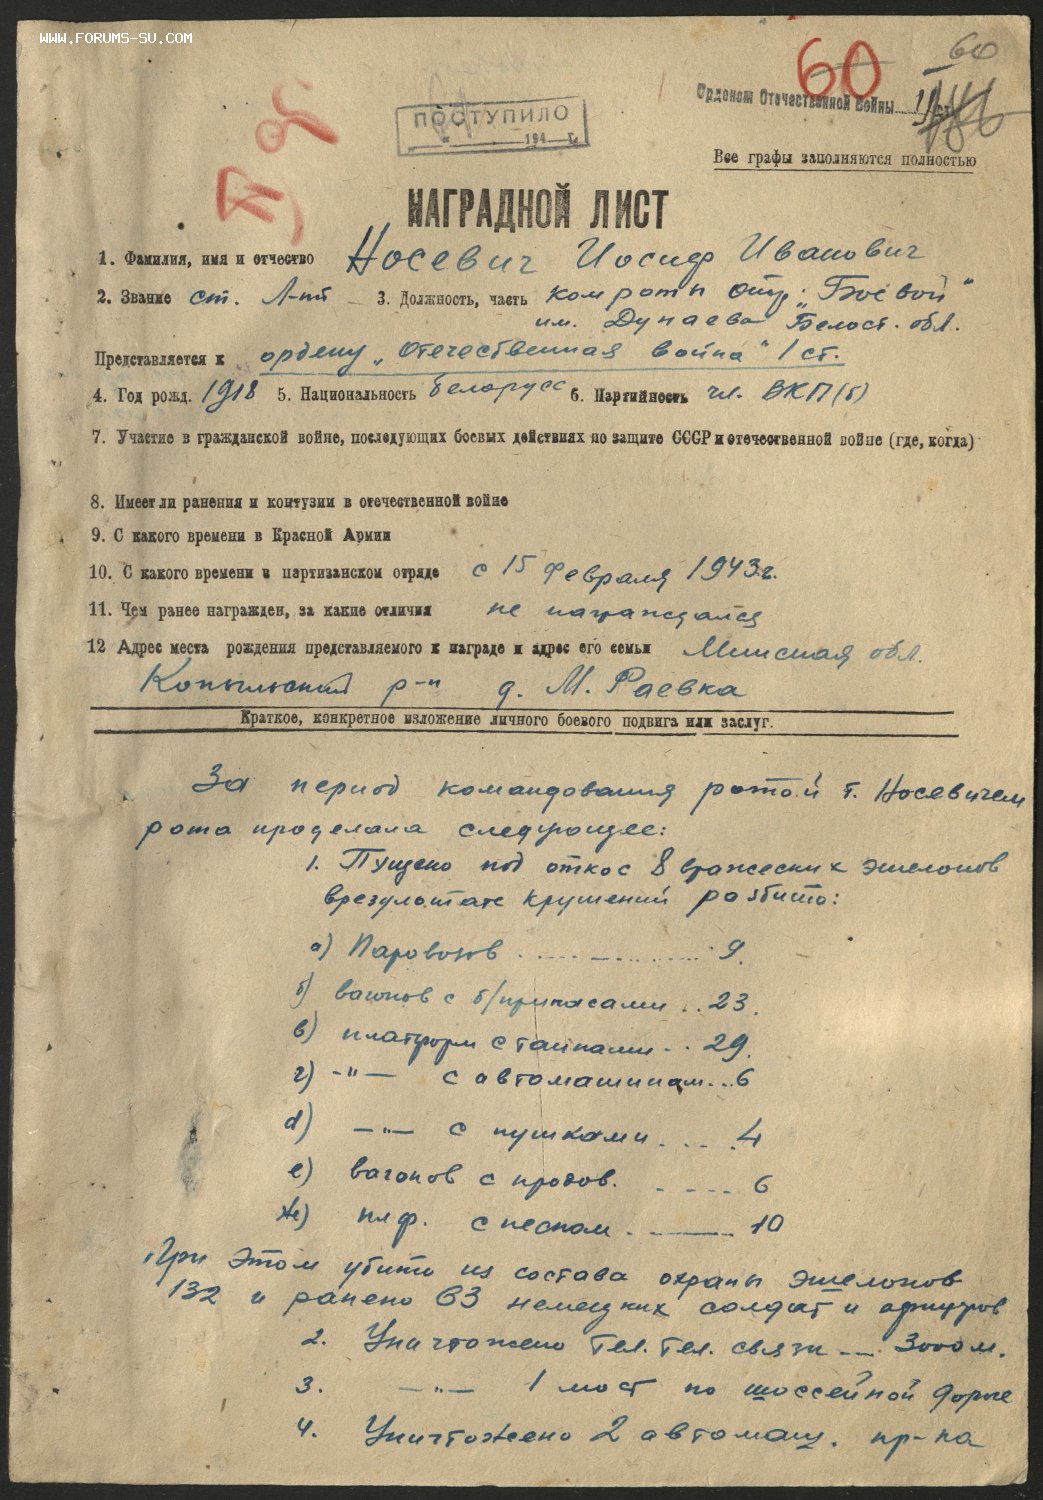 WWW.FORUMS-SU.COM
60
60
Орденом Отечественной Войны II ст.
186
ПОСТУПИЛО
" 194 г.
Все графы заполняются полностью
НАГРАДНОЙ ЛИСТ
1. Фамилия, имя и отчество Носевич Иосиф Иванович
2. Звание ст. Л-нт 3. Должность, часть ком роты отр. "Боевой"
им. Дунаева Белост. обл.
Представляется к ордену „Отечественная война" 1 ст.
4. Год рожд. 1918 5. Национальность белорусс 6. Партийность чл. ВКП(б)
7. Участие в гражданской войне, последующих боевых действиях по защите СССР и отечественной войне (где, когда)
8. Имеет ли ранения и контузии в отечественной войне
9. С какого времени в Красной Армии
10. С какого времени в партизанском отряде с 15 февраля 1943 г.
11. Чем ранее награжден, за какие отличия не награждался
12 Адрес места рождения представляемого к награде и адрес его семьи Минская обл.
Копыльский р-н д. М. Раевка
Краткое, конкретное изложение личного боевого подвига или заслуг.
За период командования ротой т. Носевичем
рота проделала следующее:
1. Пущено под откос 8 вражеских эшелонов
врезультате крушений разбито:
а) Паровозов 9.
б) вагонов с б/припасами .. 23.
в) платформ с танками .. 29.
г) -"- с автомашинам ... 6
d) -"- с пушками .... 4
е) вагонов с продов. ---- 6
ж) плф. с песком. —— 10
При этом убито из состава охраны эшелонов
132 и ранено 63 немецких солдат и офицеров
2. Уничтожено тел. тел. связи —— 3000 м.
3. -"- 1 мост по шоссейной дороге
4. Уничтожено 2 автомаш. пр-ка